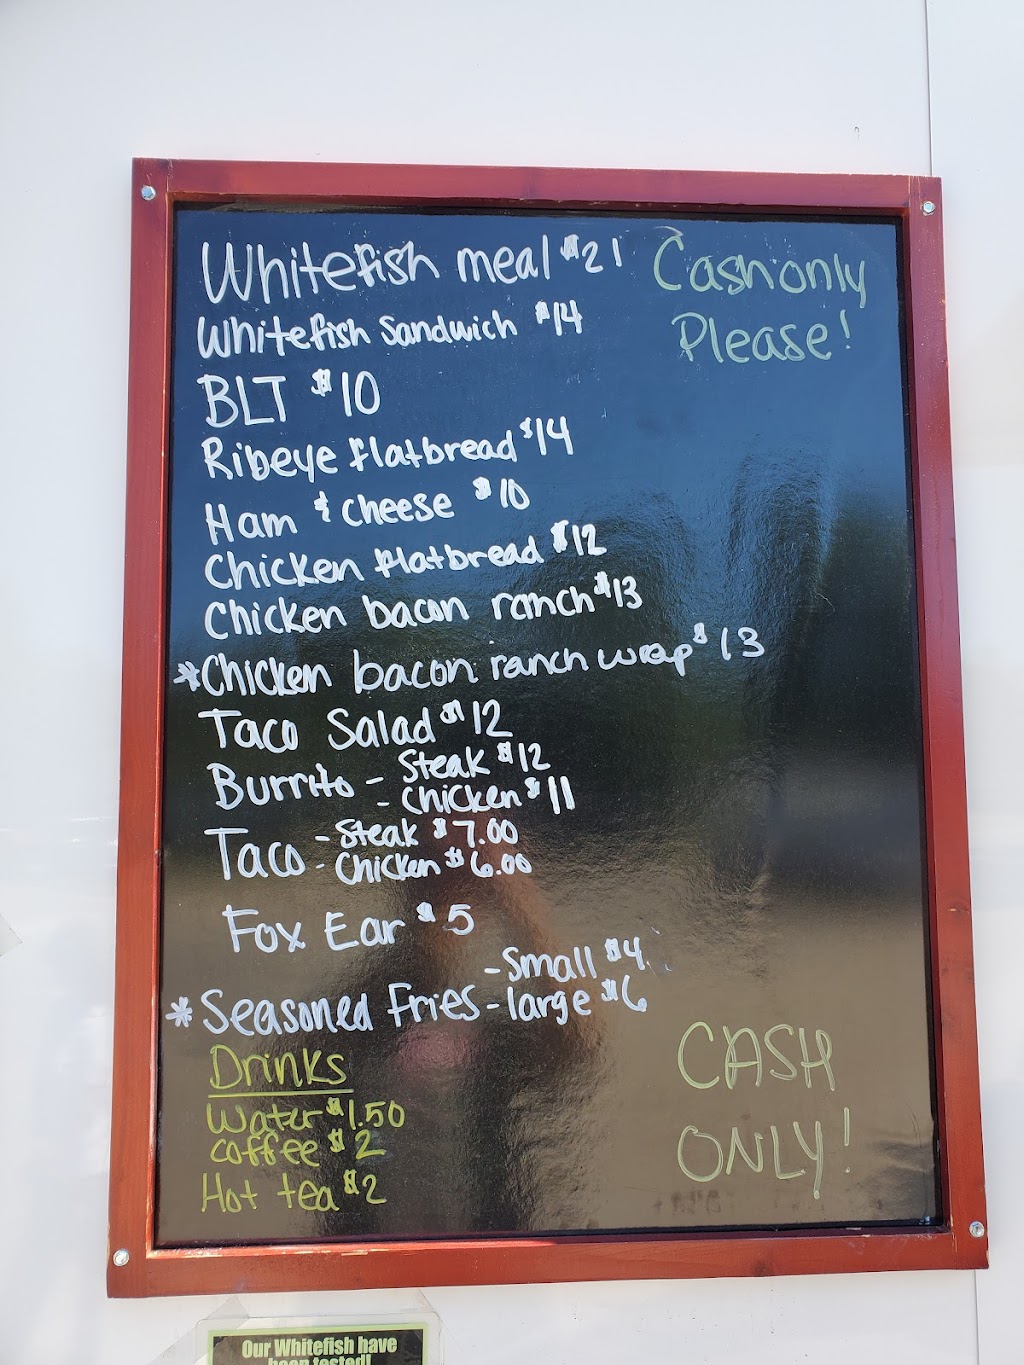 Whitefish meal $21
Cash only
Please!
Whitefish Sandwich $14
BLT $10
Ribeye flatbread $14
Ham & cheese $10
Chicken flatbread $12
Chicken bacon ranch $13
*Chicken bacon ranch wrap $13
Taco Salad $12
Burrito - Steak $12
- Chicken $11
Taco - Steak $7.00
- Chicken $6.00
Fox Ear $5
- Small $4
*Seasoned Fries - large $6
Drinks
Water $1.50
coffee $2
Hot tea $2
CASH
ONLY!
Our Whitefish have
been tested!